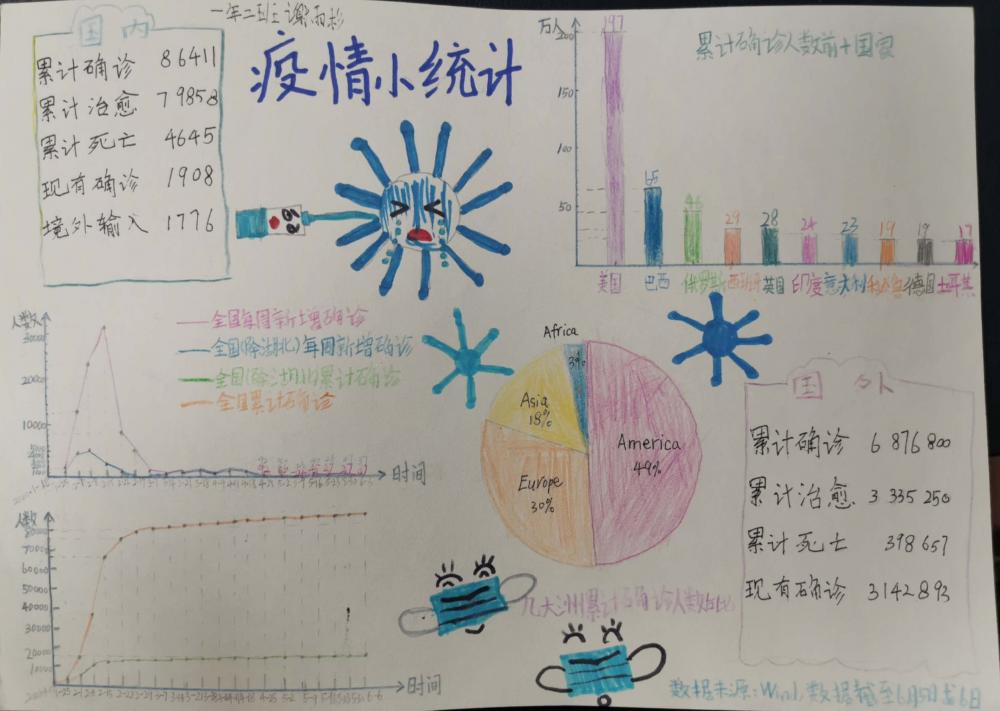 一年二班
疫情小统计
国内
累计确诊 86411
累计治愈 79858
累计死亡 4645
现有确诊 1908
境外输入 1776
累计确诊人数前十国家
万人
200
150
100
50
197
65
46
29
28
24
23
19
19
17
美国 巴西 俄罗斯 西班牙 英国 印度 意大利 德国 土耳其
人数
30000
20000
10000
全国每周新增确诊
全国(除湖北)每周新增确诊
全国(除湖北)累计确诊
全国累计确诊
时间
人数
80000
70000
60000
50000
40000
30000
20000
10000
时间
Africa
3%
Asia
18%
America
49%
Europe
30%
累计确诊人数占比
国外
累计确诊 6 876 800
累计治愈 3 335 250
累计死亡 398 657
现有确诊 3142 893
数据来源:Wind,数据截至6月5日